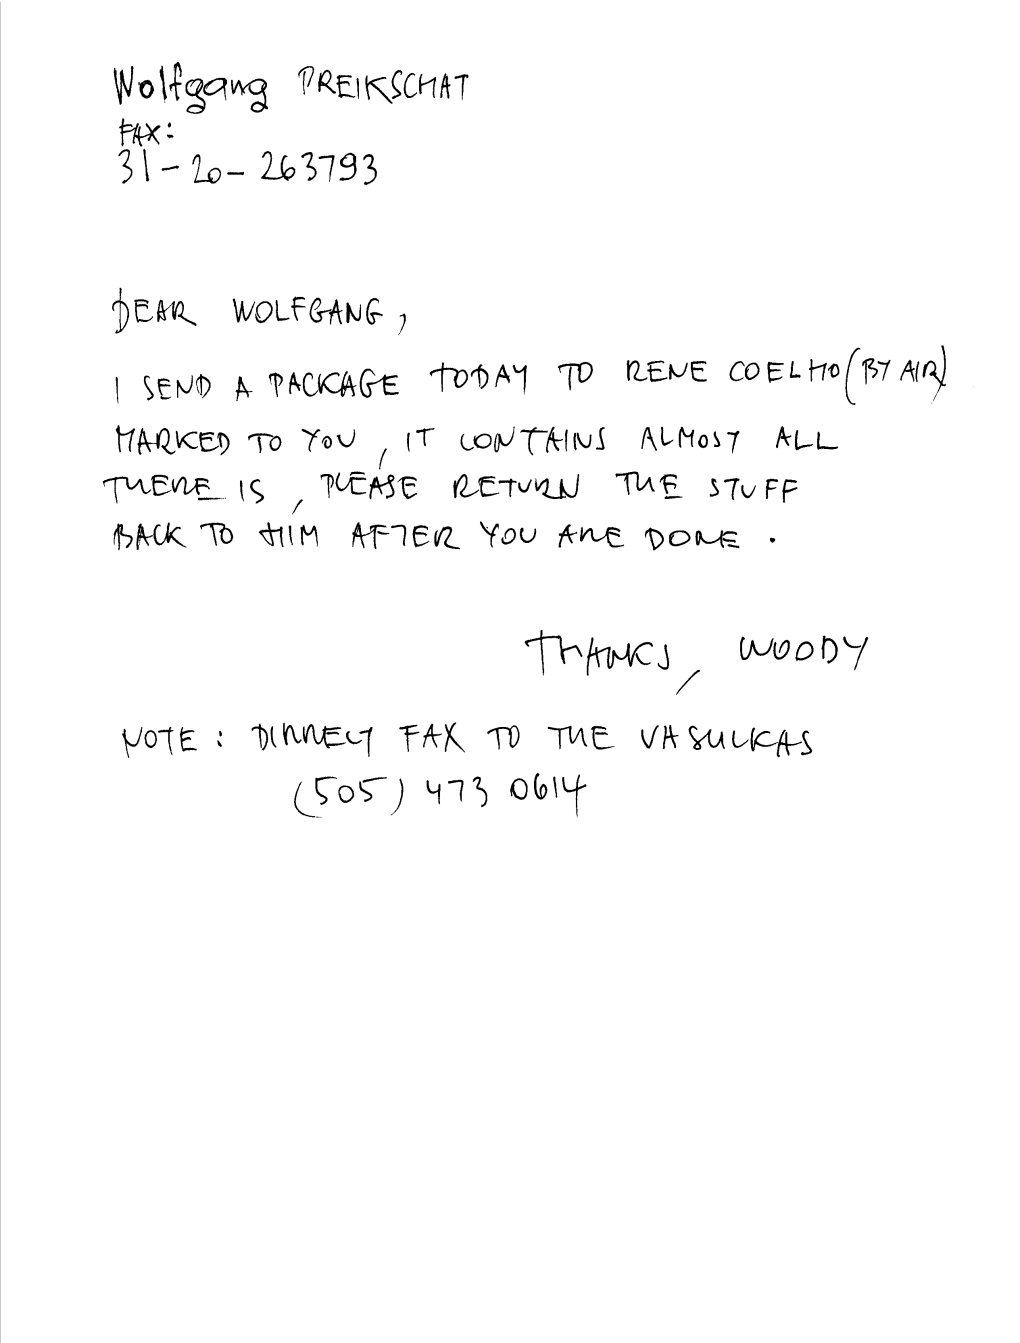 Wolfgang PREIKSCHAT
FAX:
31-20-263793
DEAR WOLFGANG,
I SEND A PACKAGE TODAY TO RENE COELHO (BY AIR)
MARKED TO YOU, IT CONTAINS ALMOST ALL
THERE IS, PLEASE RETURN THE STUFF
BACK TO HIM AFTER YOU ARE DONE.
THANKS, WOODY
NOTE: DIRRECT FAX TO THE VASULKAS
(505) 473 0614